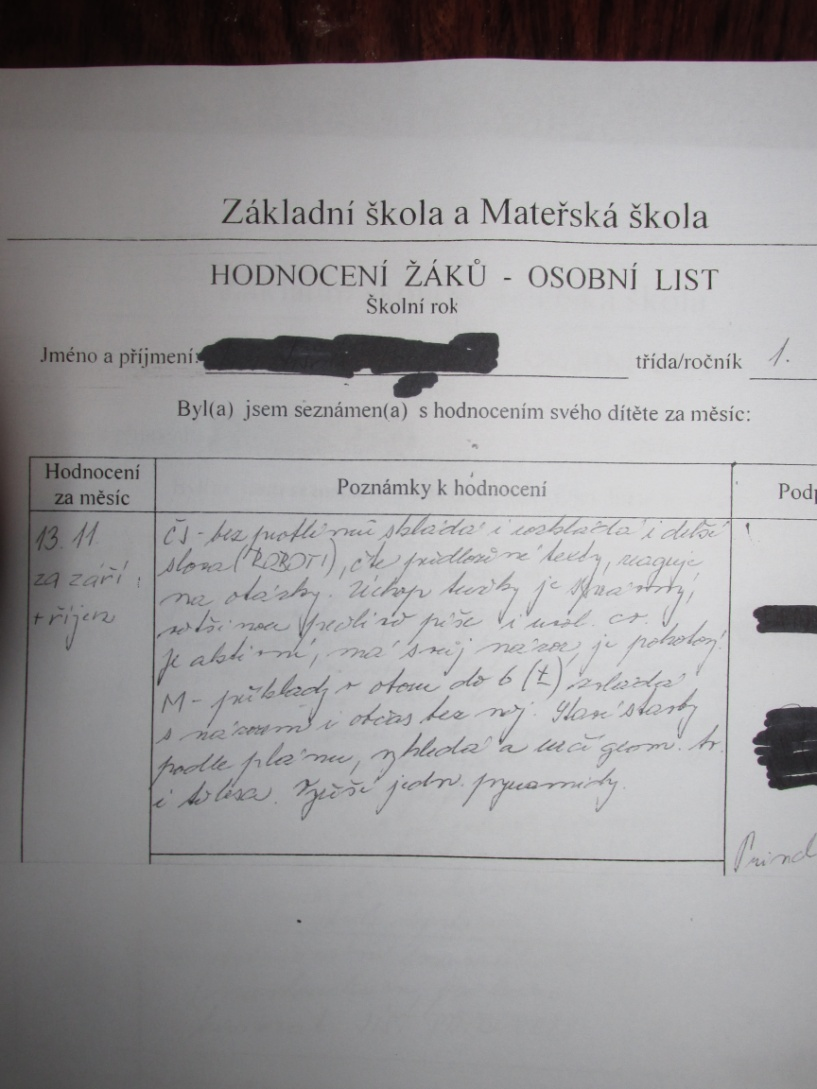 Základní škola a Mateřská škola
HODNOCENÍ ŽÁKŮ - OSOBNÍ LIST
Školní rok
Jméno a příjmení: třída/ročník 1.
Byl(a) jsem seznámen(a) s hodnocením svého dítěte za měsíc:
Hodnocení za měsíc
Poznámky k hodnocení
Podp
13. 11.
za září
+ říjen
ČJ - bez problémů skládá i rozkládá i delší
slova (ROBOTI), čte předložené texty, reaguje
na otázky. Úchop tužky je správný,
většinou pečlivě píše i uvol. cv.
Je aktivní, má svůj názor, je pohotový.
M - příklady v oboru do 6 (±) zvládá
s názorem i občas bez něj. Staví stavby
podle plánu, vyhledá a určí geom. tv.
i tělesa. Vyřeší jedn. pyramidy.